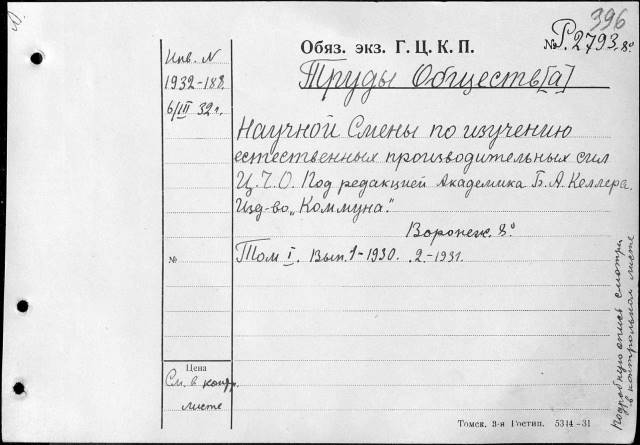 396
Обяз. экз. Г. Ц. К. П.
№ Р.2793. 8°
Инв. N
1932-188.
6/III 32 г.
Труды Обществ[а]
Научной Смены по изучению
естественных производительных сил
Ц.Ч.О. Под редакцией Академика Б. А. Келлера.
Изд-во „Коммуна."
Воронеж. 8°
№
Том I. Вып. 1-1930. 2.-1931.
Цена
См. в контр.
листе
Подробную опись смотри
в контрольном листе
Томск. 3-я Гостип. 5314-31